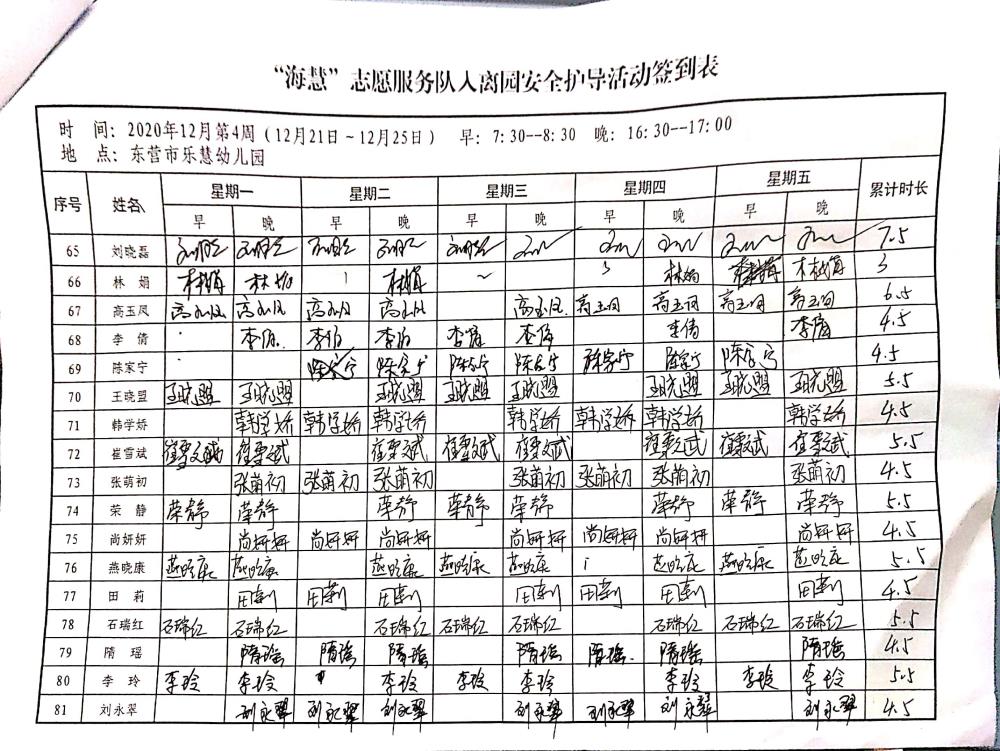 “海慧”志愿服务队入离园安全护导活动签到表
时 间：2020年12月第4周（12月21日～12月25日） 早：7:30--8:30 晚：16:30--17:00
地 点：东营市乐慧幼儿园
序号 姓名 星期一 星期二 星期三 星期四 星期五 累计时长
早 晚 早 晚 早 晚 早 晚 早 晚
65 刘晓磊 7.5
66 林 娟 林娟 林娟 林娟 林娟 林娟 3
67 高玉凤 6.5
68 李 倩 李倩 李倩 李倩 李倩 李倩 李倩 李倩 4.5
69 陈家宁 陈家宁 陈家宁 陈家宁 陈家宁 陈家宁 陈家宁 陈家宁 4.5
70 王晓盟 王晓盟 王晓盟 王晓盟 王晓盟 王晓盟 王晓盟 王晓盟 王晓盟 5.5
71 韩学娇 韩学娇 韩学娇 韩学娇 韩学娇 韩学娇 韩学娇 韩学娇 4.5
72 崔雪斌 崔雪斌 崔雪斌 崔雪斌 崔雪斌 崔雪斌 崔雪斌 崔雪斌 崔雪斌 5.5
73 张萌初 张萌初 张萌初 张萌初 张萌初 张萌初 张萌初 张萌初 4.5
74 荣 静 荣静 荣静 荣静 荣静 荣静 荣静 荣静 荣静 5.5
75 尚妍妍 尚妍妍 尚妍妍 尚妍妍 尚妍妍 尚妍妍 尚妍妍 尚妍妍 4.5
76 燕晓康 燕晓康 燕晓康 燕晓康 燕晓康 燕晓康 燕晓康 燕晓康 燕晓康 5.5
77 田 莉 田莉 田莉 田莉 田莉 田莉 田莉 田莉 4.5
78 石瑞红 石瑞红 石瑞红 石瑞红 石瑞红 石瑞红 石瑞红 石瑞红 石瑞红 5.5
79 隋 瑶 隋瑶 隋瑶 隋瑶 隋瑶 隋瑶 隋瑶 隋瑶 4.5
80 李 玲 李玲 李玲 李玲 李玲 李玲 李玲 李玲 李玲 5.5
81 刘永翠 刘永翠 刘永翠 刘永翠 刘永翠 刘永翠 刘永翠 刘永翠 4.5